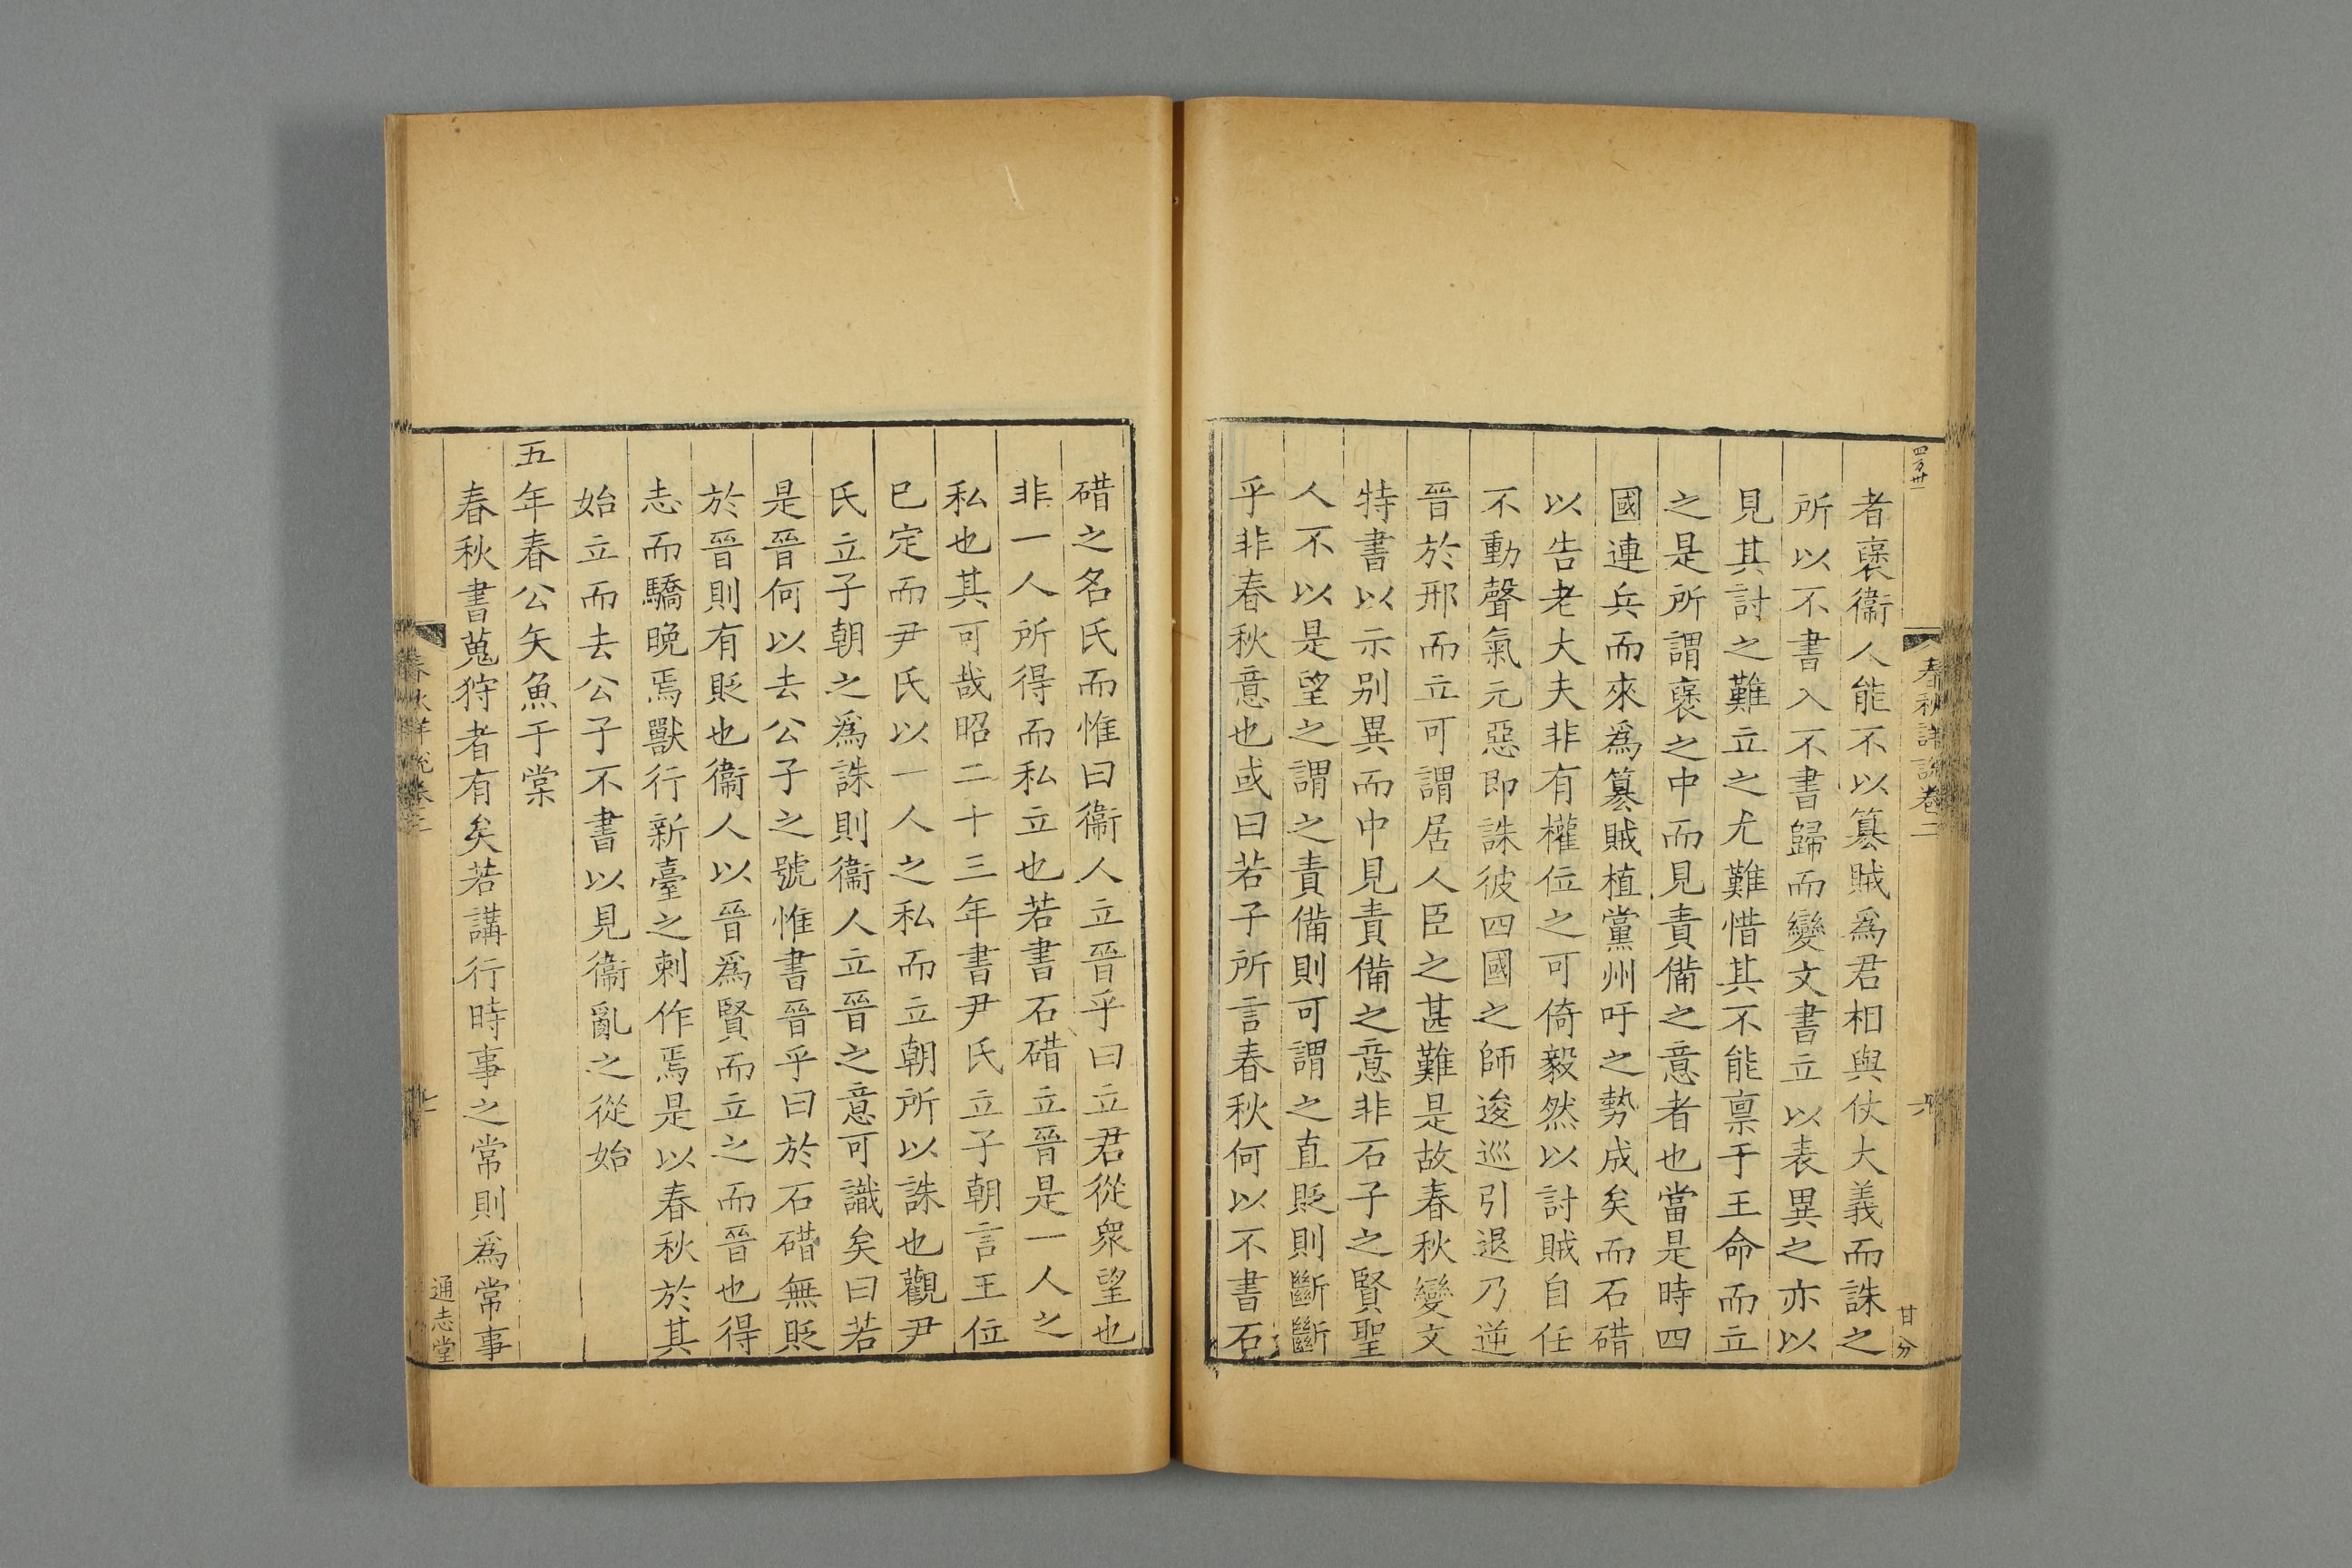 四百卅一
春秋詳說卷二
六
甘分
者襃衞人能不以篡賊爲君相與仗大義而誅之
所以不書入不書歸而變文書立以表異之亦以
見其討之難立之尤難惜其不能禀于王命而立
之是所謂襃之中而見責備之意者也當是時四
國連兵而來爲篡賊植黨州吁之勢成矣而石碏
以告老大夫非有權位之可倚毅然以討賊自任
不動聲氣元惡即誅彼四國之師逡巡引退乃逆
晉於邢而立可謂居人臣之甚難是故春秋變文
特書以示别異而中見責備之意非石子之賢聖
人不以是望之謂之責備則可謂之直貶則斷斷
乎非春秋意也或曰若子所言春秋何以不書石
碏之名氏而惟曰衞人立晉乎曰立君從衆望也
非一人所得而私立也若書石碏立晉是一人之
私也其可哉昭二十三年書尹氏立子朝言王位
已定而尹氏以一人之私而立朝所以誅也觀尹
氏立子朝之爲誅則衞人立晉之意可識矣曰若
是晉何以去公子之號惟書晉乎曰於石碏無貶
於晉則有貶也衞人以晉爲賢而立之而晉也得
志而驕晚焉獸行新臺之刺作焉是以春秋於其
始立而去公子不書以見衞亂之從始
五年春公矢魚于棠
春秋書蒐狩者有矣若講行時事之常則爲常事
春秋詳說卷二
七
通志堂